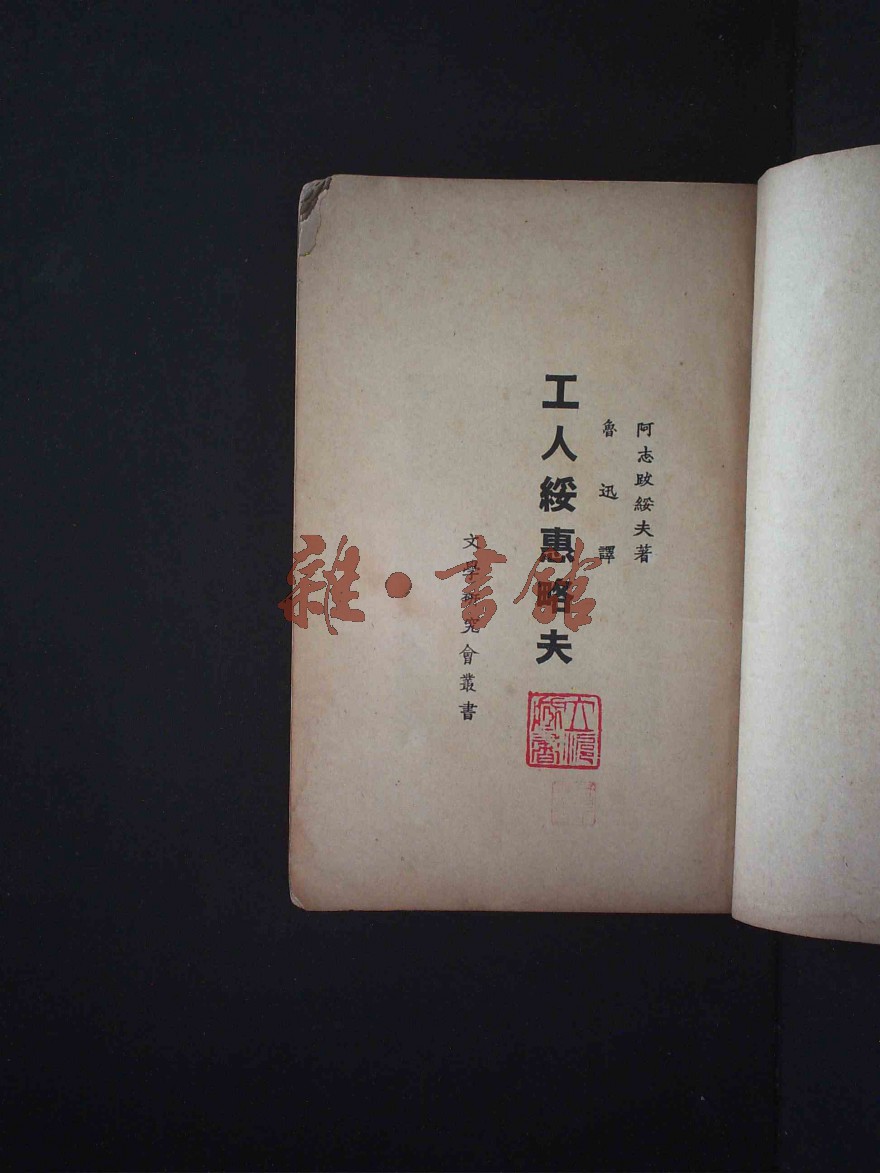 阿志跂綏夫著
魯迅譯
工人綏惠略夫
文學研究會叢書
雜·書館